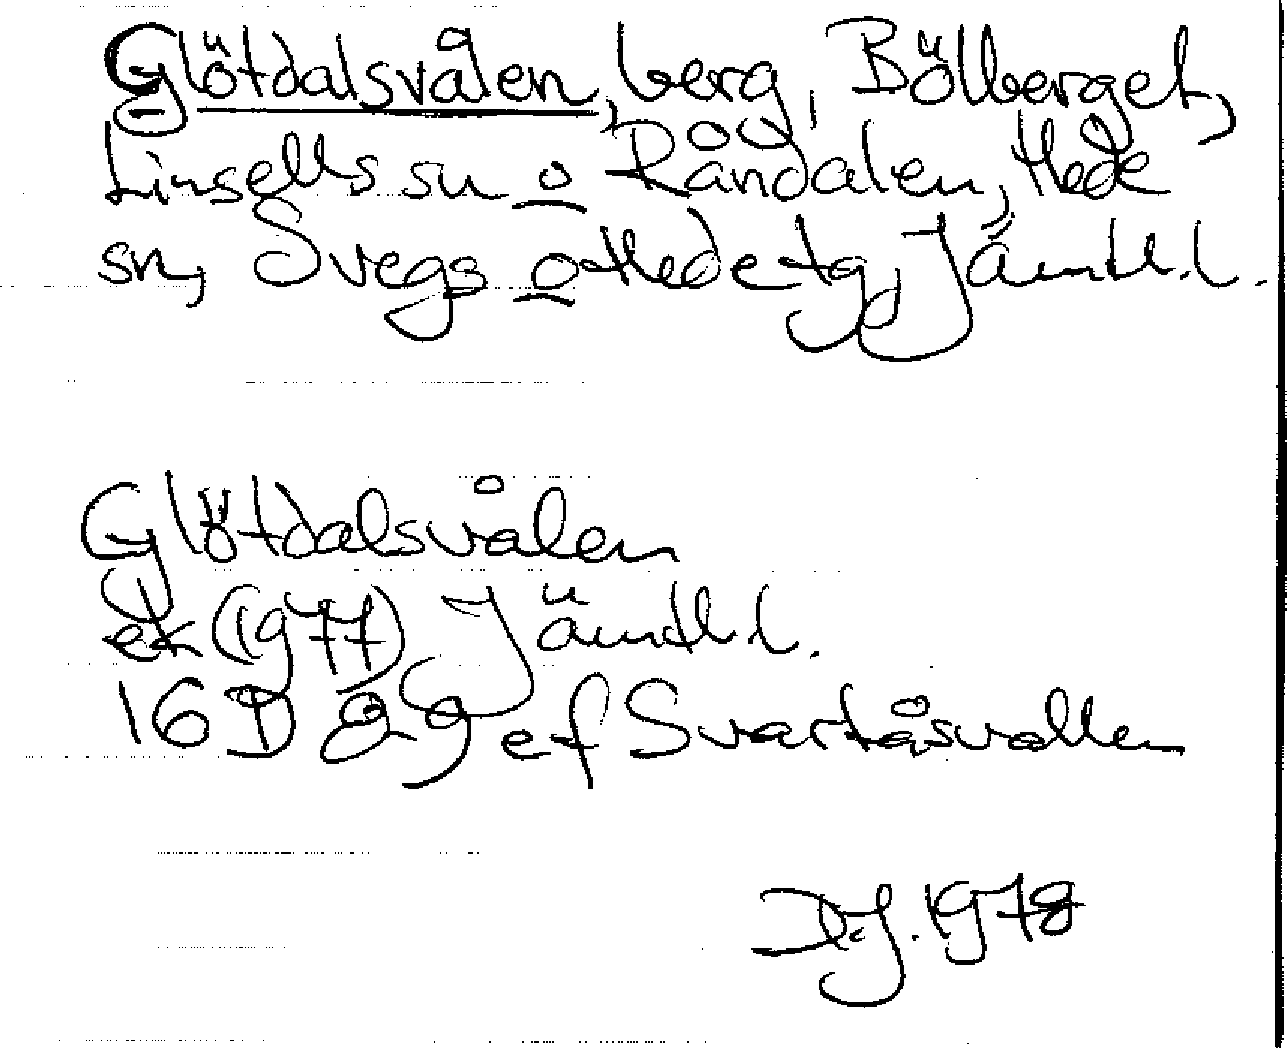 Glötdalsvålen, berg, Bölberget,
Linsells sn o Råndalen, Hede
sn, Svegs o Hede tg, Jämtl. l.
Glötdalsvålen
ek (1977) Jämtl. l.
16 D 8-9 e f Svartåsvallen
D.J. 1978